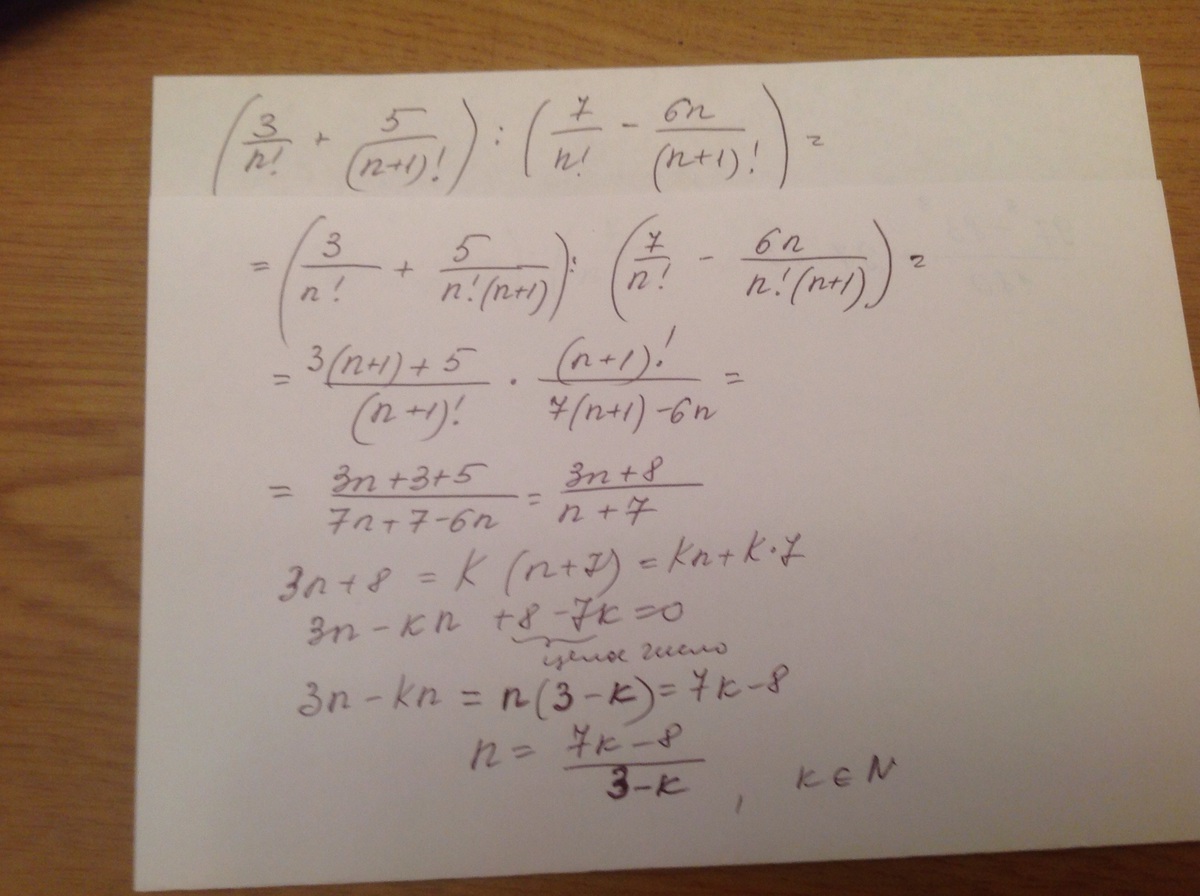 (3/n! + 5/(n+1)!) : (7/n! - 6n/(n+1)!) =
= (3/n! + 5/n!(n+1)) : (7/n! - 6n/n!(n+1)) =
= 3(n+1)+5/(n+1)! · (n+1)!/7(n+1)-6n =
= 3n+3+5/7n+7-6n = 3n+8/n+7
3n+8 = K (n+7) = Kn+K·7
3n-kn +8-7k=0
целое число
3n-kn = n(3-k)= 7k-8
n= 7k-8/3-k, k∈N